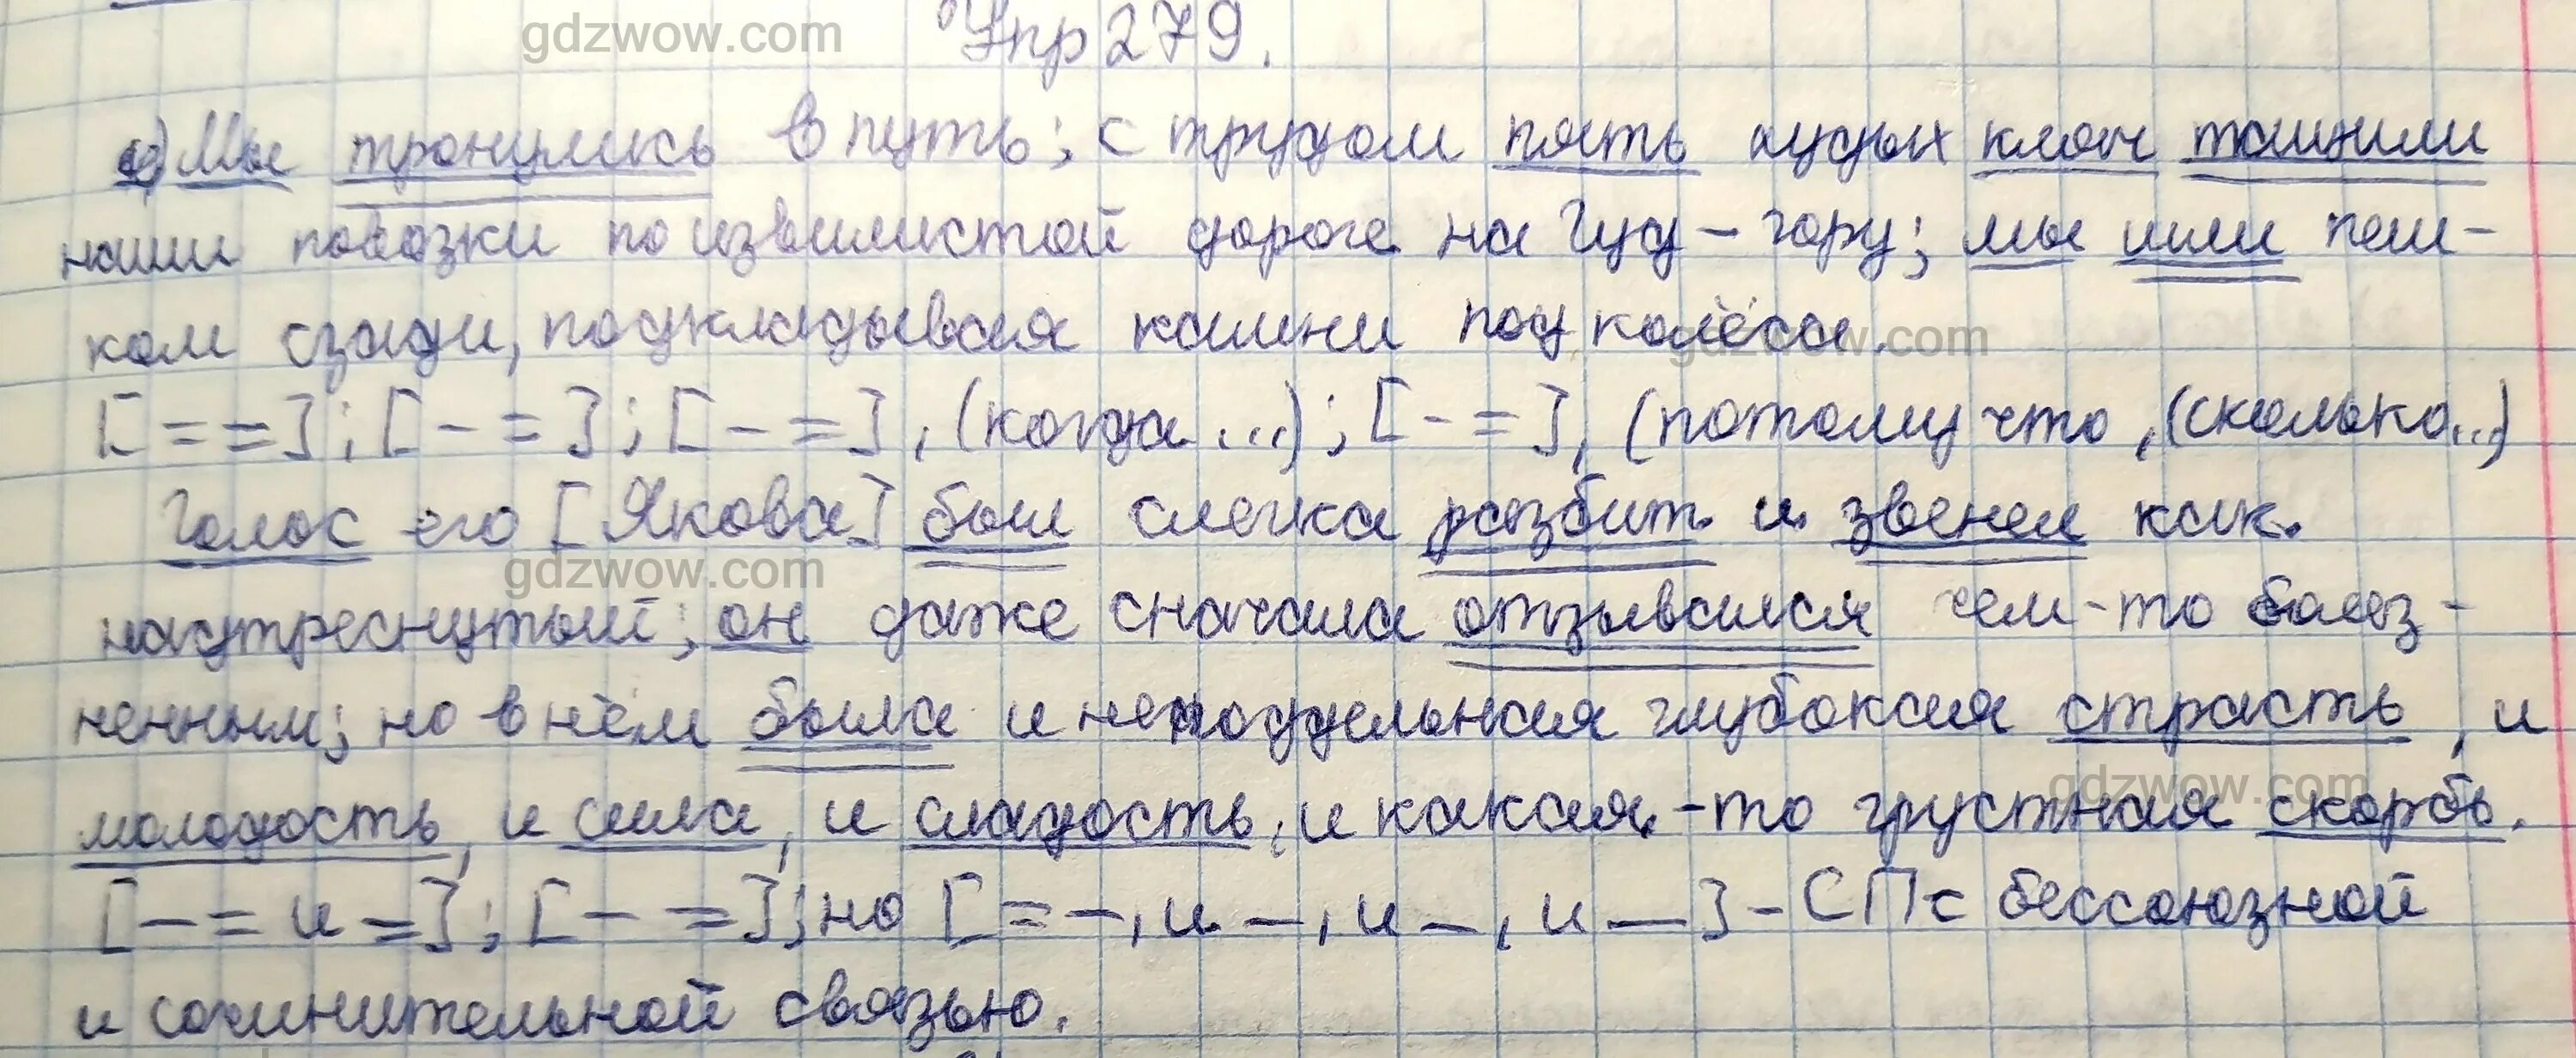 Упр 279.
а) Мы тронулись в путь; с трудом пять худых кляч тащили
наши повозки по извилистой дороге на Гуд-гору; мы шли пеш-
ком сзади, подкладывая камни под колёса.
[= =]; [- =]; [- =], (когда...); [- =], (потому что, (сколько...)
Голос его [Якова] был слегка разбит и звенел как
надтреснутый; он даже сначала отзывался чем-то болез-
ненным; но в нём была и неподдельная глубокая страсть, и
молодость, и сила, и сладость, и какая-то грустная скорбь.
[- = и =]; [- =]; но [= -, и -, и -, и -] - СП с бессоюзной
и сочинительной связью.
gdzwow.com
gdzwow.com
gdzwow.com
gdzwow.com